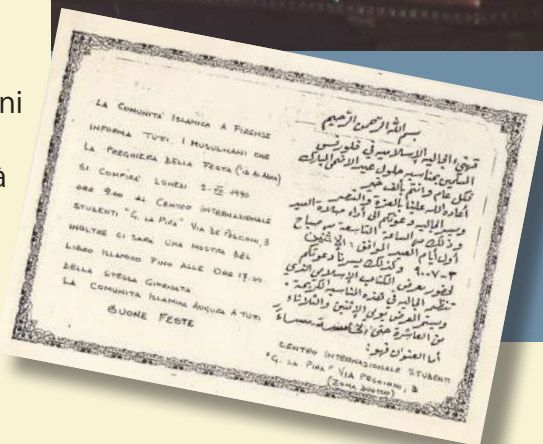 ni
à
LA COMUNITÀ ISLAMICA A FIRENZE
INFORMA TUTI I MUSULMANI CHE
LA PREGHIERA DELLA FESTA (ID AL ADHA)
SI COMPIRÀ LUNEDI 2-VII 1990
ORE 9.00 AL CENTRO INTERNAZIONALE
STUDENTI "G. LA PIRA" VIA DE PESCIONI, 3
INOLTRE CI SARÀ UNA MOSTRA DEL
LIBRO ISLAMICO FINO ALLE ORE 17.00
DELLA STESSA GIORNATA
LA COMUNITÀ ISLAMICA AUGURA A TUTI
BUONE FESTE
بسم الله الرحمن الرحيم
تهنئ الجالية الإسلامية في فلورنس
المسلمين بمناسبة حلول عيد الأضحى المبارك
فكل عام وأنتم بألف خير
أعاده الله علينا بالعزة والنصر
ويسر الجالية دعوتكم إلى أداء صلاة العيد
وذلك من الساعة التاسعة من صباح
أول أيام العيد الموافق: الإثنين
وكذلك يسرنا دعوتكم
لحضور معرض الكتاب الإسلامي الذي
تنظمه الجالية في هذه المناسبة الكريمة
وسيتم العرض يومي الإثنين والثلاثاء
من العاشرة حتى الخامسة مساءً
أما العنوان فهو:
CENTRO INTERNAZIONALE STUDENTI
"G. LA PIRA" VIA PESCIONI, 3
(ZONA DUOMO)